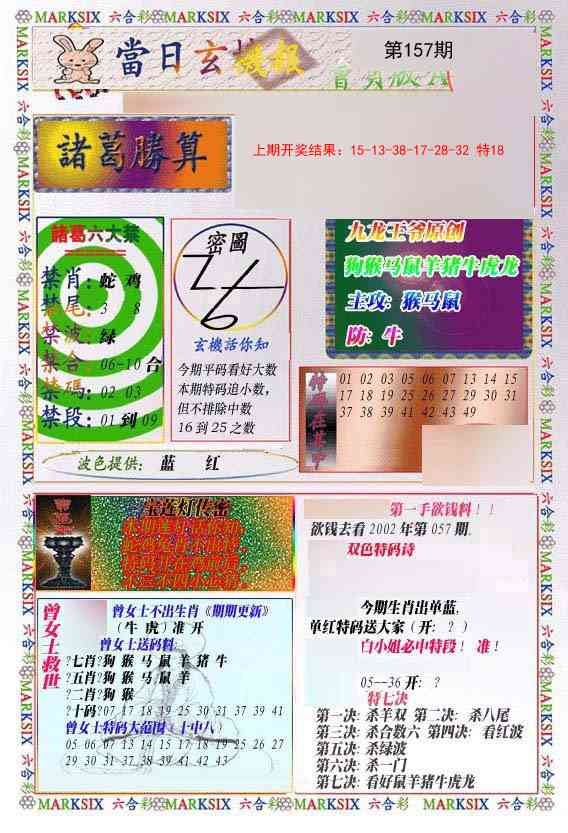 MARKSIX 六合彩 MARKSIX 六合彩 MARKSIX 六合彩 MARKSIX 六合彩 MARKSIX
當日玄機報
第157期
諸葛勝算
上期开奖结果：15-13-38-17-28-32 特18
諸葛六大禁
禁肖：蛇 鸡
禁尾：3 8
禁波：绿
禁合：06-10 合
禁碼：02 03
禁段：01 到 09
密圖
玄機活你知
今期平码看好大数
本期特码追小数，
但不排除中数
16 到 25 之数
九龙王爷原创
狗猴马鼠羊猪牛虎龙
主攻：猴马鼠
防：牛
特码在其中
01 02 03 05 06 07 13 14 15
17 18 19 25 26 27 29 30 31
37 38 39 41 42 43 49
波色提供： 蓝 红
宝莲灯传密
曾女士救世
曾女士不出生肖《期期更新》
（牛 虎）准 开
曾女士送码料：
?七肖?狗 猴 马 鼠 羊 猪 牛
?五肖?狗 猴 马 鼠 羊
?二肖?狗 猴
?十码?07 17 18 19 25 30 31 37 39 41
曾女士特码大范围（十中八）
05 06 07 13 14 15 17 18 19 25 26 27
29 30 31 37 38 39 41 42 43
第一手欲钱料！！
欲钱去看 2002 年第 057 期.
双色特码诗
今期生肖出单蓝，
单红特码送大家（开：？）
白小姐必中特段！ 准！
05--36 开：？
特七决
第一决：杀羊双 第二决：杀八尾
第三决：杀合数六 第四决：看红波
第五决：杀绿波
第六决：杀一门
第七决：看好鼠羊猪牛虎龙
MARKSIX 六合彩 MARKSIX 六合彩 MARKSIX 六合彩 MARKSIX 六合彩 MARKSIX